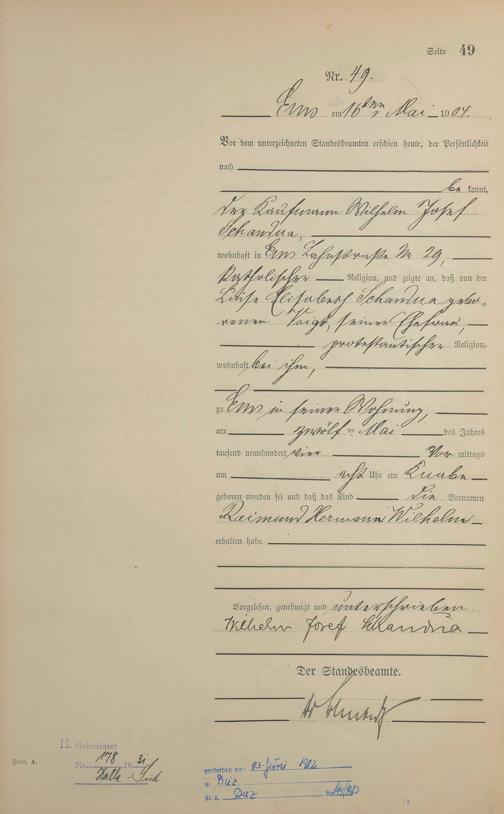 Seite 49
Nr. 49.
Ems am 16ten Mai 1904.
Vor dem unterzeichneten Standesbeamten erschien heute, der Persönlichkeit
nach
be kannt,
der Kaufmann Wilhelm Josef
Schandua,
wohnhaft in Ems Lahnstraße Nr 29,
katholischer Religion, und zeigte an, daß von der
Luise Elisabeth Schandua gebo-
renen Voigt, seiner Ehefrau,
protestantischer Religion,
wohnhaft bei ihm,
zu Ems in seiner Wohnung,
am zwölften Mai des Jahres
tausend neunhundert vier Vor mittags
um acht Uhr ein Knabe
geboren worden sei und daß das Kind die Vornamen
Raimund Hermann Wilhelm
erhalten habe.
Vorgelesen, genehmigt und unterschrieben
Wilhelm Josef Schandua
Der Standesbeamte.
Form. A.
H. Geheiratet
Nr. 178 1931
Halle-Süd
gestorben am: 03. Juni 1982
in Diez
St. A. Diez